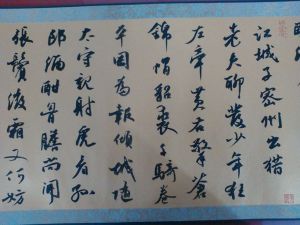 江城子密州出猎
老夫聊發少年狂
左牽黄右擎蒼
錦帽貂裘千騎卷
平岡為報傾城隨
太守親射虎看孫
郎酒酣胸膽尚開
張鬢微霜又何妨